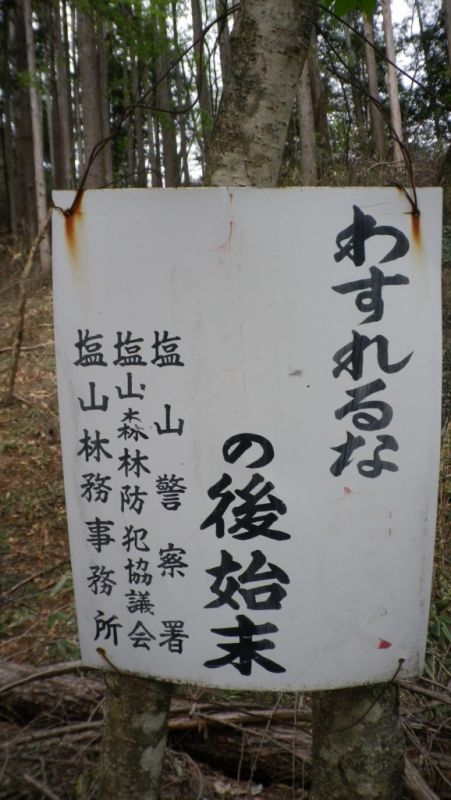 わすれるな
の後始末
塩山警察署
塩山森林防犯協議会
塩山林務事務所